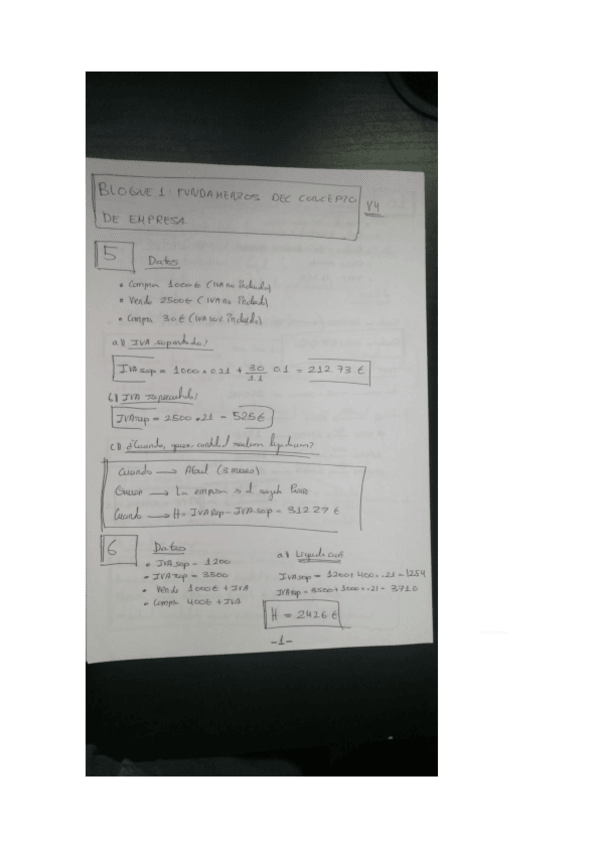 BLOQUE 1: FUNDAMENTOS DEL CONCEPTO
DE EMPRESA
V4
5 Datos
• Compra 1000€ (IVA no Incluido)
• Vende 2500€ (IVA no Incluido)
• Compra 30€ (IVA Incluido)
a) IVA soportado?
IVAsop = 1000 · 0.21 + 30/1.1 0.1 = 212.73 €
b) IVA repercutido?
IVArep = 2500 · .21 = 525€
c) ¿Cuando, quien, cantidad realizan liquidacion?
Cuando → Abril (3 meses)
Quien → La empresa es el sujeto Pasivo
Cuanto → H = IVArep - IVAsop = 312.27 €
6 Datos
• IVAsop = 1200
• IVArep = 3500
• Vende 1000€ + IVA
• Compra 400€ + IVA
a) Liquidacion
IVAsop = 1200 + 400 · .21 = 1284
IVArep = 3500 + 1000 · .21 = 3710
H = 2426 €
-1-